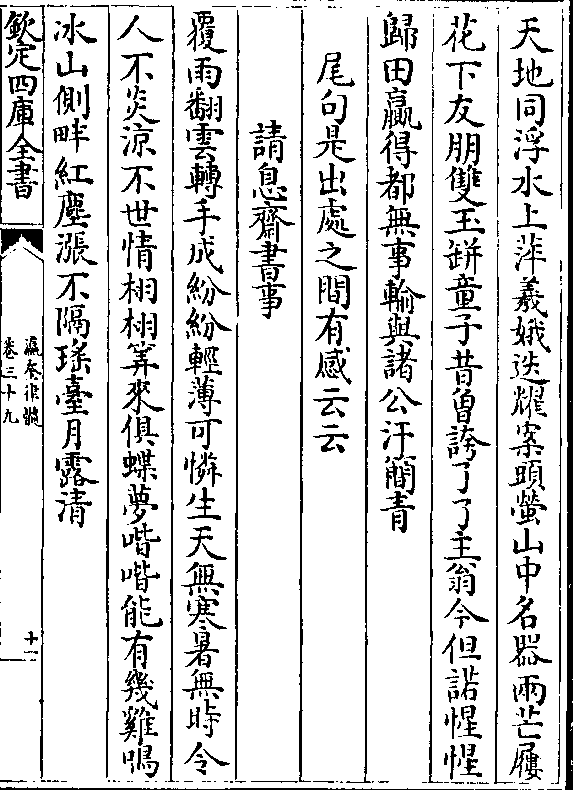 天地同浮水上萍羲娥迭耀案頭螢山中名器兩芒屨
花下友朋雙玉缾童子昔曾誇了了主翁今但諾惺惺
歸田贏得都無事輸與諸公汗簡青
尾句是出處之間有感云云
請息齋書事
覆雨翻雲轉手成紛紛輕薄可憐生天無寒暑無時令
人不炎涼不世情栩栩筭來俱蝶夢喈喈能有幾雞鳴
冰山側畔紅塵漲不隔瑤臺月露清
欽定四庫全書
瀛奎律髓
卷三十九
十一